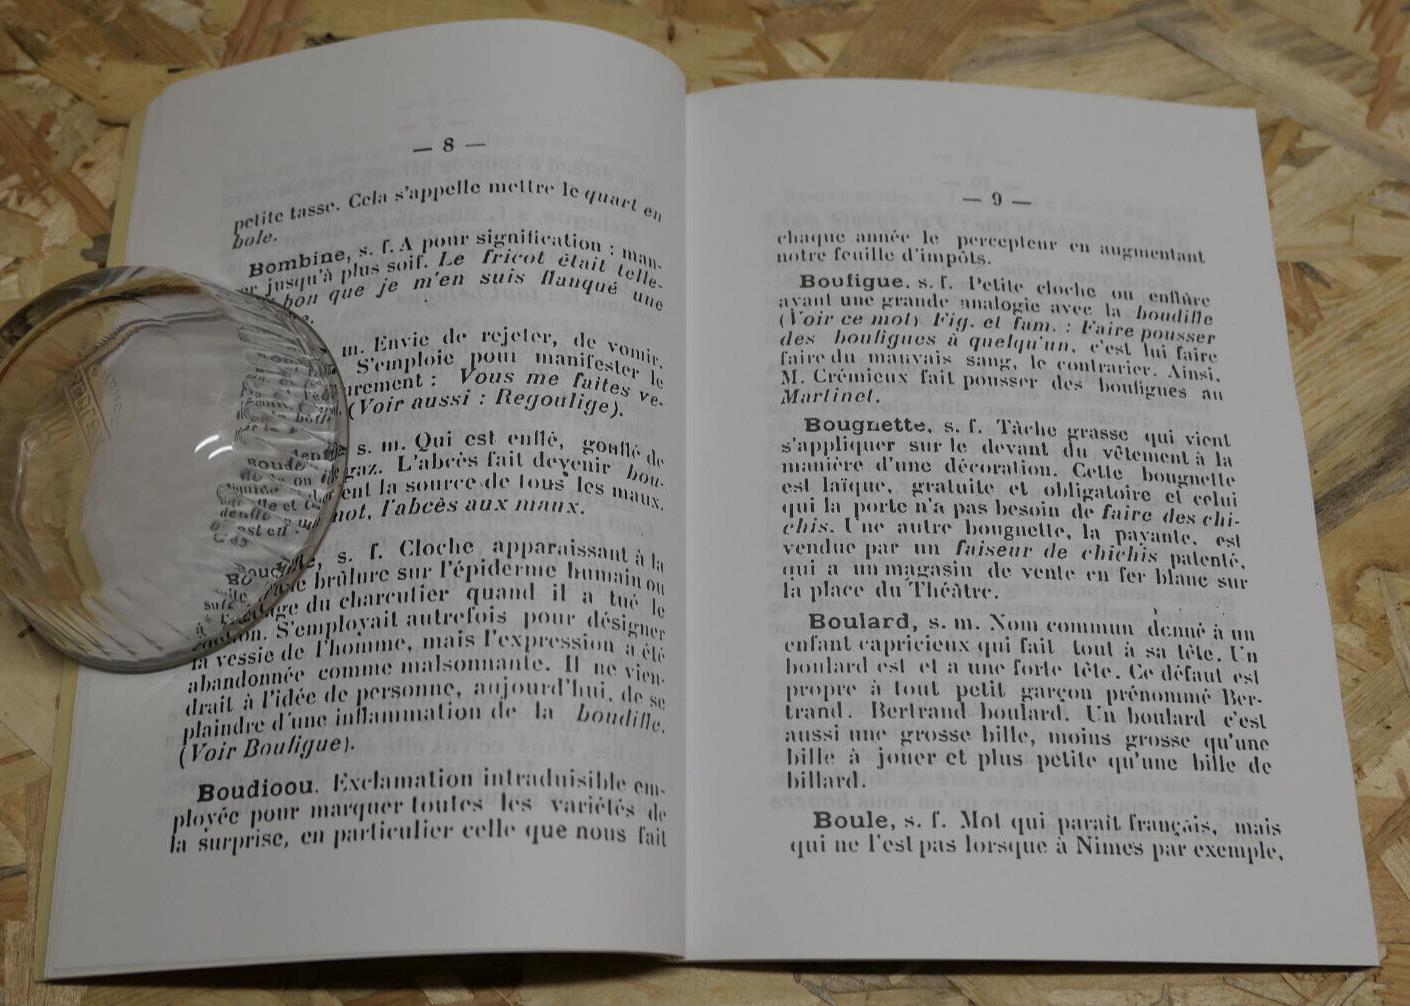 — 8 —
petite tasse. Cela s'appelle mettre le quart en
bole.
Bombine, s. f. A pour signification : man-
er jusqu'à plus soif. Le fricot était telle-
bon que je m'en suis flanqué une
m. Envie de rejeter, de vomir.
S'emploie pour manifester le
urement : Vous me faites ve-
(Voir aussi : Regoulige).
s. m. Qui est enflé, gonflé de
gaz. L'abcès fait devenir bou-
ent la source de tous les maux.
mot, l'abcès aux maux.
s. f. Cloche apparaissant à la
brûlure sur l'épiderme humain ou
du charcutier quand il a tué le
S'employait autrefois pour désigner
la vessie de l'homme, mais l'expression a été
abandonnée comme malsonnante. Il ne vien-
drait à l'idée de personne, aujourd'hui, de se
plaindre d'une inflammation de la boudifle.
(Voir Boufigue).
Boudioou. Exclamation intraduisible em-
ployée pour marquer toutes les variétés de
la surprise, en particulier celle que nous fait
— 9 —
chaque année le percepteur en augmentant
notre feuille d'impôts.
Boufigue. s. f. Petite cloche ou enflure
ayant une grande analogie avec la boudifle
(Voir ce mot) Fig. et fam. : Faire pousser
des boufigues à quelqu'un, c'est lui faire
faire du mauvais sang, le contrarier. Ainsi,
M. Crémieux fait pousser des boufigues au
Martinet.
Bougnette, s. f. Tâche grasse qui vient
s'appliquer sur le devant du vêtement à la
manière d'une décoration. Cette bougnette
est laïque, gratuite et obligatoire et celui
qui la porte n'a pas besoin de faire des chi-
chis. Une autre bougnette, la payante, est
vendue par un faiseur de chichis patenté,
qui a un magasin de vente en fer blanc sur
la place du Théâtre.
Boulard, s. m. Nom commun donné à un
enfant capricieux qui fait tout à sa tête. Un
boulard est et a une forte tête. Ce défaut est
propre à tout petit garçon prénommé Ber-
trand. Bertrand boulard. Un boulard c'est
aussi une grosse bille, moins grosse qu'une
bille à jouer et plus petite qu'une bille de
billard.
Boule, s. f. Mot qui parait français, mais
qui ne l'est pas lorsque à Nimes par exemple,